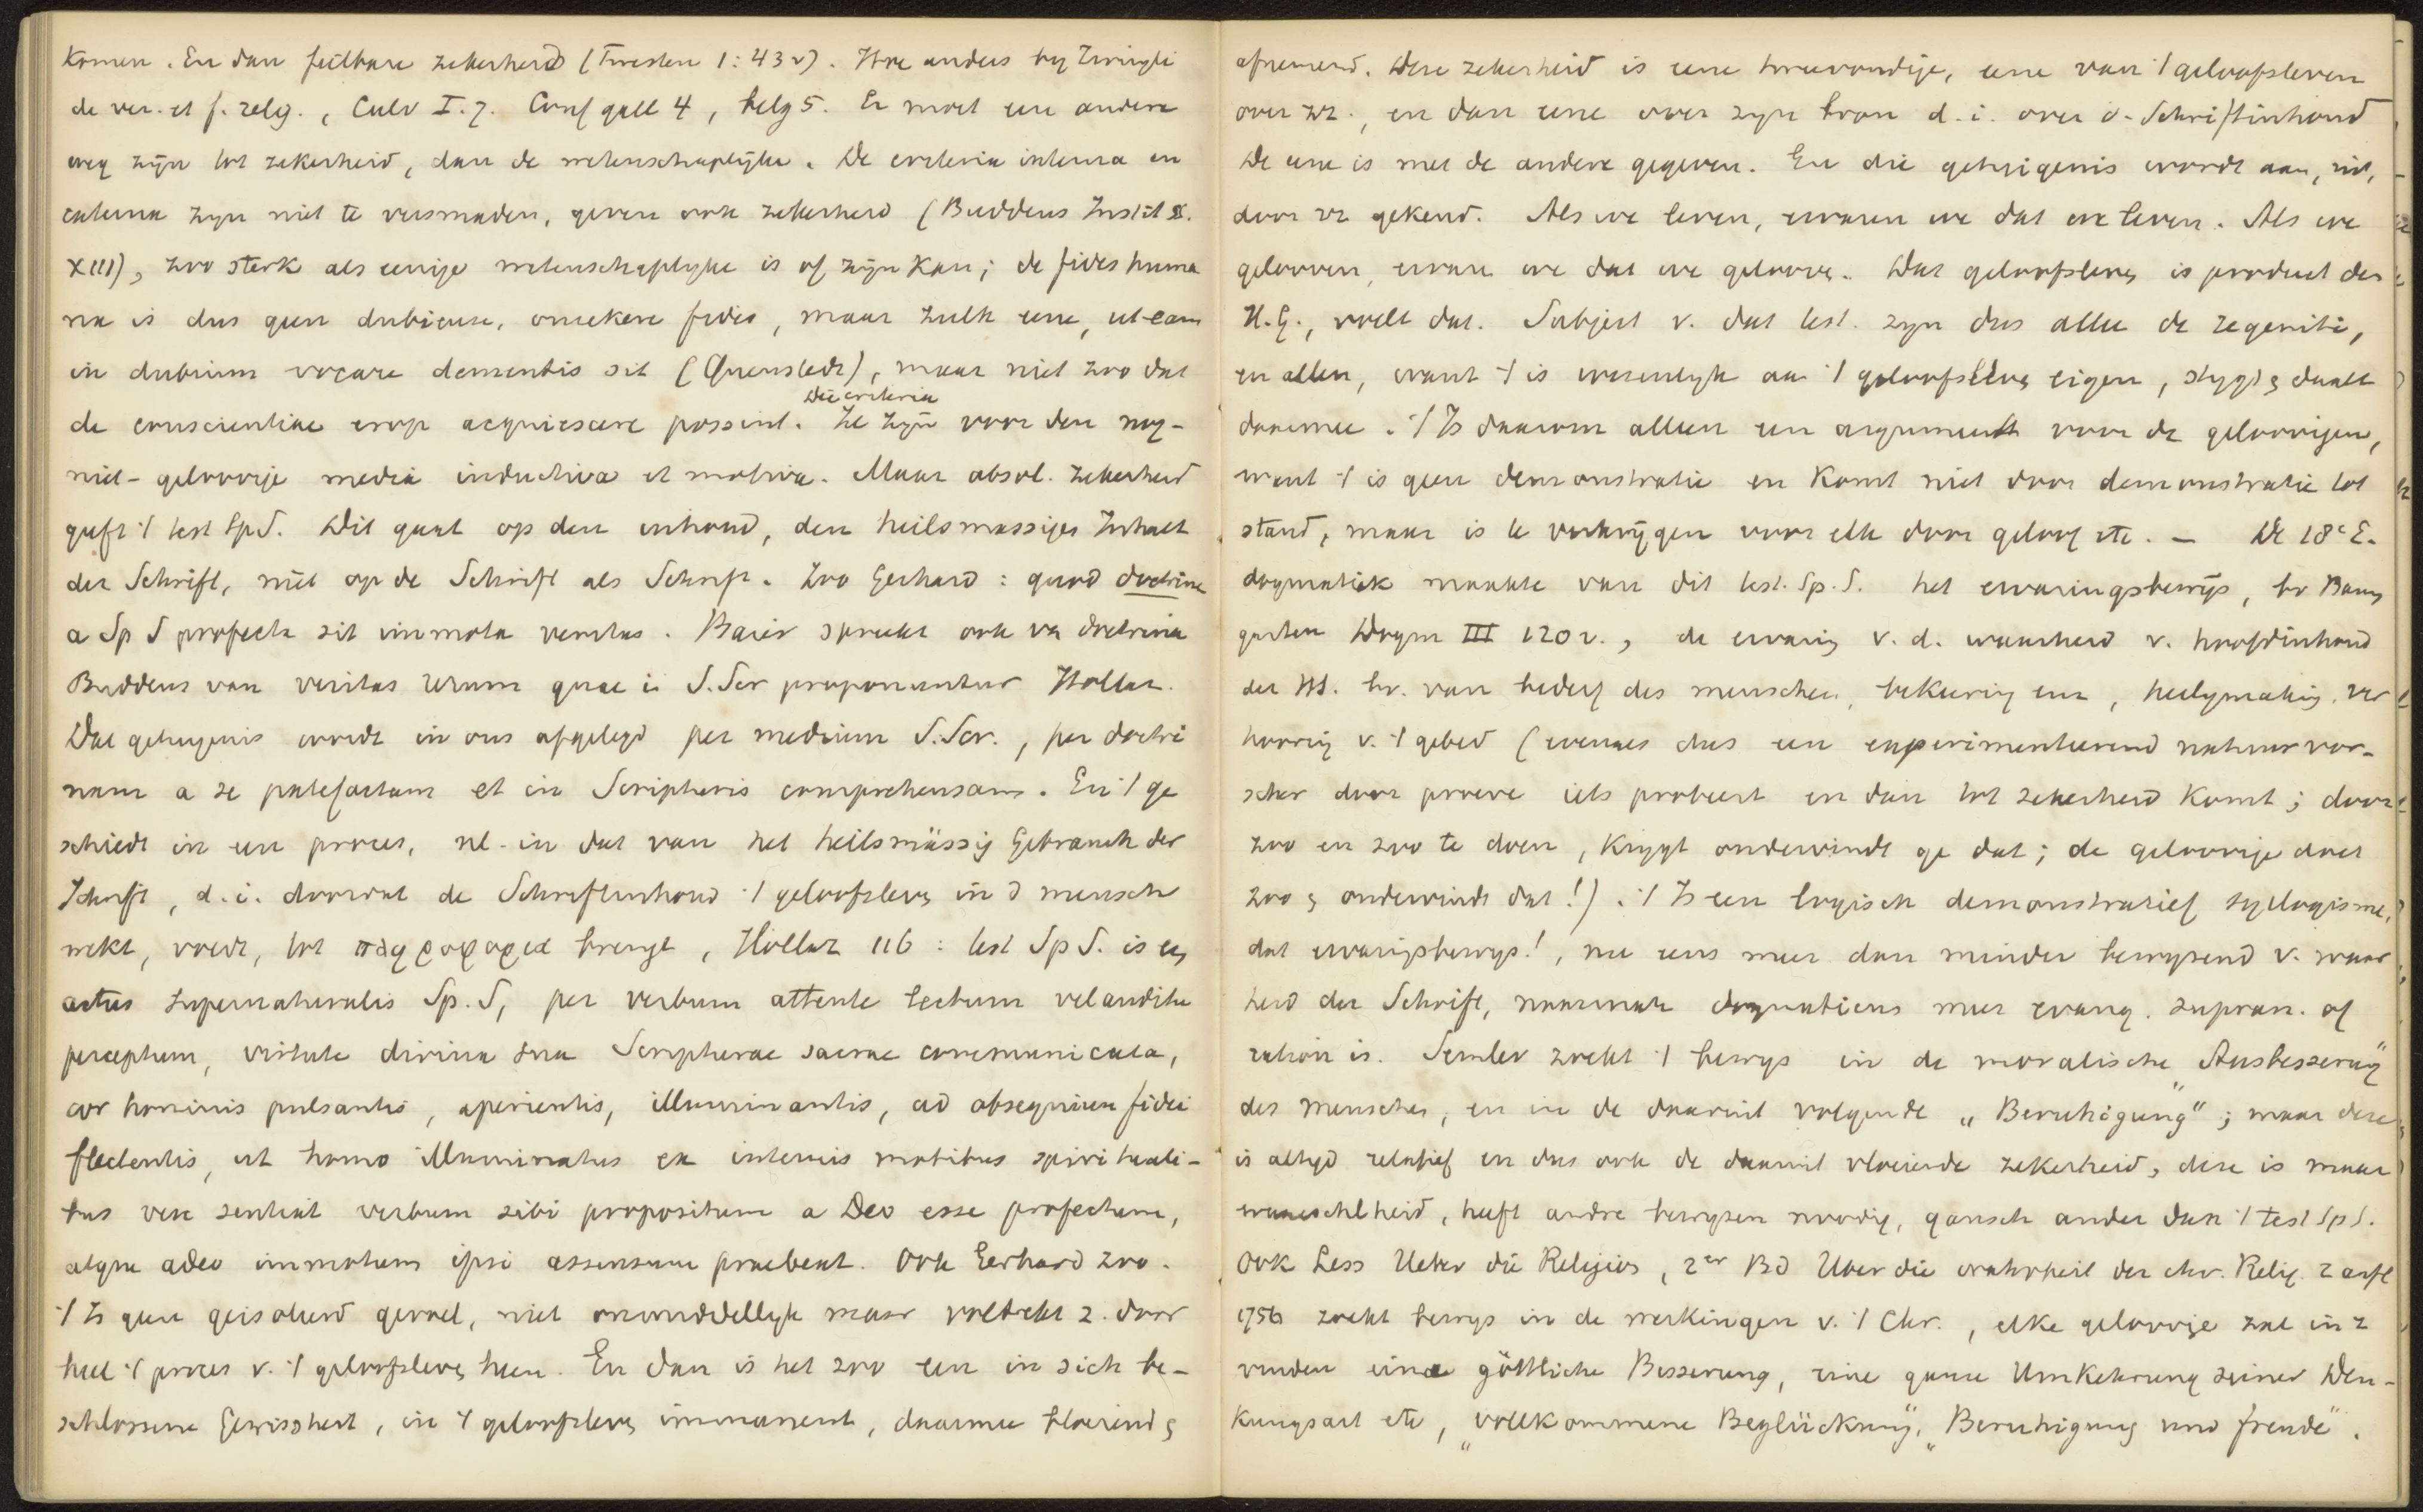 komen. En dan feilbare zekerheid (Twesten 1:43v). Hoe anders by Zwingli
de ver. et f. relig., Calv I.7. Conf gall 4, belg 5. Er moet een andere
weg zijn tot zekerheid, dan de wetenschaplijke. De criteria interna en
externa zyn niet te versmaden, geven ook zekerheid (Buddeus Instit
XIII), zoo sterk als eenige wetenschaplyke is of zijn kan; de fides huma
na is dus geen dubieuse, onzekere fides, maar zulk eene, ut eam
in dubium vocare dementis sit (Quenstedt), maar niet zoo dat
Die criteria
de conscientiae erop acquiescere possint. Ze zijn voor den nog-
niet-geloovige media inductiva et motiva. Maar absol. zekerheid
geeft 't test Sp S. Dit gaat op den inhoud, den heilsmassigen Inhalt
der Schrift, niet op de Schrift als Schrift. Zoo Gerhard: quod doctrina
a Sp S profecta sit immota veritas. Baier spreekt ook va doctrina
Buddeus van veritas rerum quae i S. Scr proponuntur Hollaz.
Dat getuigenis wordt in ons afgelegd per medium S. Scr., per doctri
nam a se patefactam et in Scripturis comprehensam. En 't ge
schiedt in een proces, nl. in dat van het heilsmässig Gebrauch der
Schrift, d.i. doordat de Schriftinhoud 't geloofsleven in d mensch
wekt, voedt, tot πληροφορια brengt, Hollaz 116: test Sp S. is een
actus supernaturalis Sp. S, per verbum attente lectum vel auditu
perceptum, virtute divina sua Scripturae sacrae communicata,
cor hominis pulsantis, aperientis, illuminantis, ad obsequium fidei
flectentis, ut homo illuminatus ex internis motibus spirituali-
bus vere sentiat verbum sibi propositum a Deo esse profectum,
atque adeo immotum ipsi assensum praebeat. Ook Gerhard zoo.
't Is geen geisoleerd gevoel, niet onmiddellyk maar voltrekt z. door
heel 't proces v. 't geloofsleven heen. En dan is het zoo een in sich be-
schlossene Gewissheit, in 't geloofsleven immanent, daarmee bloeiend en
afnemend. Deze zekerheid is eene tweevoudige, eene van 't geloofsleven
over zz., en dan eene over zyn bron d.i. over d. Schriftinhoud
De eene is met de andere gegeven. En die getuigenis wordt aan, uit,
door zz gekend. Als we leven, ervaren we dat we leven. Als we
gelooven, ervaren we dat we gelooven. Dat geloofsleven is product des
H.G., voelt dat. Subject v. dat test. zyn dus alleen de regeniti,
en allen, want 't is wezenlyk aan 't geloofsleven eigen, stygt en daalt
daarmee. 't Is daarom alleen een argument voor de geloovigen,
want 't is geen demonstratie en komt niet door demonstratie tot
stand, maar is te verkrijgen voor elk door geloof etc. — De 18e E.
dogmatiek maakte van dit test. Sp. S. het ervaringsbewijs, bv Baum
garten Dogm III 120 v., de ervaring v. d. waarheid v. hoofdinhoud
der HS. bv. van bederf des menschen, bekeering enz, heiligmaking, ver
hooring v. 't gebed (evenals dus een experimenteerend natuurvor-
scher door proeve iets probeert en dan tot zekerheid komt; door
zoo en zoo te doen, krygt ondervindt ge dat; de geloovige doet
zoo en ondervindt dat!). 't Is een logisch demonstratief syllogisme,
dat ervaringsbewys!, nu eens meer dan minder bewyzend v. waar
heid der Schrift, naarmate dogmaticus meer evang. supran. of
ration is. Semler zoekt 't bewys in de moralische „Ausbesserung”
des menschen, en in de daaruit volgende „Beruhigung”; maar deze
is altyd relatief en dus ook de daaruit vloeiende zekerheid, deze is maar
menschlheid, heeft andre bewyzen noodig, gansch ander dan 't test Sp S.
Ook Less Ueber die Religion, 2er Bd Uber die wahrheit der chr. Relig. 2 aufl
1756 zoekt bewys in de werkingen v. 't Chr., elke geloovige zal in z
vinden eine göttliche Besserung, eine ganze Umkehrung seiner Den-
kungsart etc, „vollkommene Beglückung”, „Beruhigung und freude”.